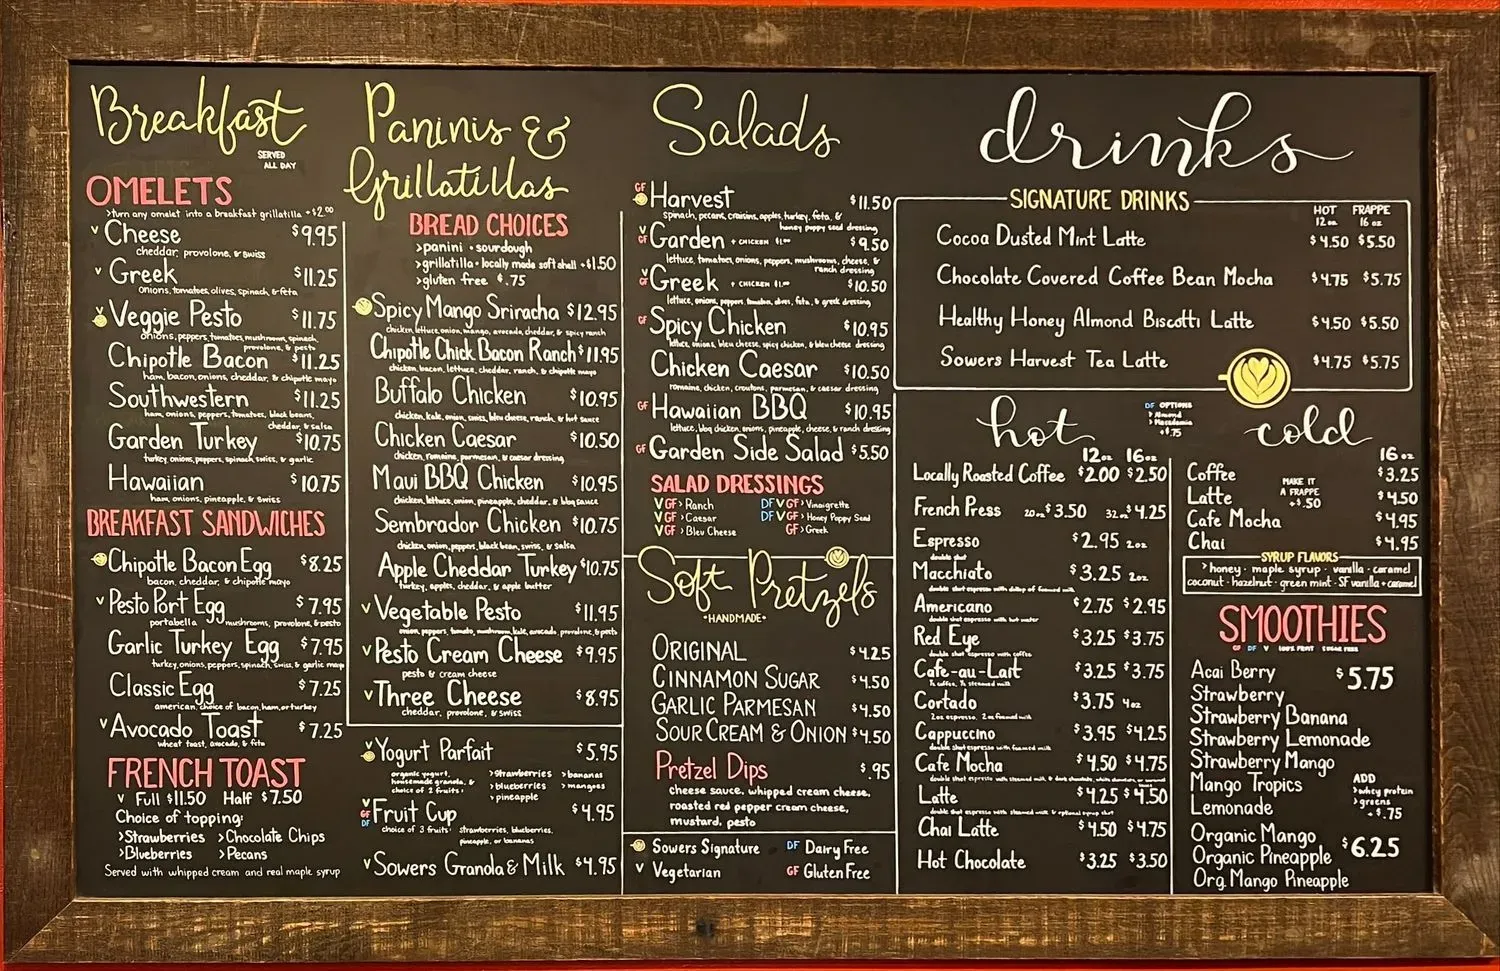 Breakfast
SERVED
ALL DAY
OMELETS
>turn any omelet into a breakfast grillatilla +$2.00
V Cheese $9.95
cheddar, provolone, & swiss
V Greek $11.25
onions, tomatoes, olives, spinach, & feta
V Veggie Pesto $11.75
onions, peppers, tomatoes, mushroom, spinach,
provolone, & pesto
Chipotle Bacon $11.25
ham, bacon, onions, cheddar, & chipotle mayo
Southwestern $11.25
ham, onions, peppers, tomatoes, black beans,
cheddar, & salsa
Garden Turkey $10.75
turkey, onions, peppers, spinach, swiss, & garlic
Hawaiian $10.75
ham, onions, pineapple, & swiss
BREAKFAST SANDWICHES
Chipotle Bacon Egg $8.25
bacon, cheddar, & chipotle mayo
V Pesto Port Egg $7.95
portabella mushrooms, provolone, & pesto
Garlic Turkey Egg $7.95
turkey, onions, peppers, spinach, swiss, & garlic mayo
Classic Egg $7.25
american, choice of bacon, ham, or turkey
V Avocado Toast $7.25
wheat toast, avocado, & feta
FRENCH TOAST
V Full $11.50 Half $7.50
Choice of topping:
>Strawberries >Chocolate Chips
>Blueberries >Pecans
Served with whipped cream and real maple syrup
Paninis &
Grillatillas
BREAD CHOICES
>panini • sourdough
>grillatilla • locally made soft shell +$1.50
>gluten free $.75
Spicy Mango Sriracha $12.95
chicken, lettuce, onion, mango, avocado, cheddar, & spicy ranch
Chipotle Chick Bacon Ranch $11.95
chicken, bacon, lettuce, cheddar, ranch, & chipotle mayo
Buffalo Chicken $10.95
chicken, kale, onion, swiss, bleu cheese, ranch, & hot sauce
Chicken Caesar $10.50
chicken, romaine, parmesan, & caesar dressing
Maui BBQ Chicken $10.95
chicken, lettuce, onion, pineapple, cheddar, & bbq sauce
Sembrador Chicken $10.75
chicken, onion, peppers, black bean, swiss, & salsa
Apple Cheddar Turkey $10.75
turkey, apples, cheddar, & apple butter
V Vegetable Pesto $11.95
onion, peppers, tomato, mushroom, kale, avocado, provolone, & pesto
V Pesto Cream Cheese $9.95
pesto & cream cheese
V Three Cheese $8.95
cheddar, provolone, & swiss
V Yogurt Parfait $5.95
organic yogurt,
housemade granola, &
choice of 2 fruits:
>strawberries >bananas
>blueberries >mangoes
>pineapple
V GF DF Fruit Cup $4.95
choice of 3 fruits: strawberries, blueberries,
pineapple, or bananas
V Sowers Granola & Milk $4.95
Salads
GF Harvest $11.50
spinach, pecans, craisins, apples, turkey, feta, &
honey poppy seed dressing
V GF Garden + CHICKEN $1.00 $9.50
lettuce, tomatoes, onions, peppers, mushrooms, cheese, &
ranch dressing
V GF Greek + CHICKEN $1.00 $10.50
lettuce, onions, peppers, tomatoes, olives, feta, & greek dressing
GF Spicy Chicken $10.95
lettuce, onions, bleu cheese, spicy chicken, & bleu cheese dressing
Chicken Caesar $10.50
romaine, chicken, croutons, parmesan, & caesar dressing
GF Hawaiian BBQ $10.95
lettuce, bbq chicken, onions, pineapple, cheese, & ranch dressing
GF Garden Side Salad $5.50
SALAD DRESSINGS
V GF > Ranch DF V GF > Vinaigrette
V GF > Caesar DF V GF > Honey Poppy Seed
V GF > Bleu Cheese GF > Greek
Soft Pretzels
•HANDMADE•
ORIGINAL $4.25
CINNAMON SUGAR $4.50
GARLIC PARMESAN $4.50
SOUR CREAM & ONION $4.50
Pretzel Dips $.95
cheese sauce, whipped cream cheese,
roasted red pepper cream cheese,
mustard, pesto
Sowers Signature DF Dairy Free
V Vegetarian GF Gluten Free
drinks
SIGNATURE DRINKS
HOT FRAPPE
12 oz 16 oz
Cocoa Dusted Mint Latte $4.50 $5.50
Chocolate Covered Coffee Bean Mocha $4.75 $5.75
Healthy Honey Almond Biscotti Latte $4.50 $5.50
Sowers Harvest Tea Latte $4.75 $5.75
hot
DF OPTIONS
> Almond
> Macadamia
+$.75
12oz 16oz
Locally Roasted Coffee $2.00 $2.50
French Press 20oz $3.50 32oz $4.25
Espresso $2.95 2oz
double shot
Macchiato $3.25 2oz
double shot espresso with dollop of foamed milk
Americano $2.75 $2.95
double shot espresso with hot water
Red Eye $3.25 $3.75
double shot espresso with coffee
Cafe-au-Lait $3.25 $3.75
½ coffee, ½ steamed milk
Cortado $3.75 4oz
2oz espresso, 2oz foamed milk
Cappuccino $3.95 $4.25
double shot espresso with foamed milk
Cafe Mocha $4.50 $4.75
Latte $4.25 $4.50
double shot espresso with steamed milk & optional syrup shot
Chai Latte $4.50 $4.75
Hot Chocolate $3.25 $3.50
cold
16 oz
Coffee $3.25
Latte $4.50
MAKE IT
A FRAPPE
+$.50
Cafe Mocha $4.95
Chai $4.95
SYRUP FLAVORS
>honey · maple syrup · vanilla · caramel
coconut · hazelnut · green mint · SF vanilla + caramel
SMOOTHIES
GF DF V 100% FRUIT SUGAR FREE
Acai Berry $5.75
Strawberry
Strawberry Banana
Strawberry Lemonade
Strawberry Mango
Mango Tropics
Lemonade
ADD
>whey protein
>greens
+$.75
Organic Mango
Organic Pineapple $6.25
Org. Mango Pineapple